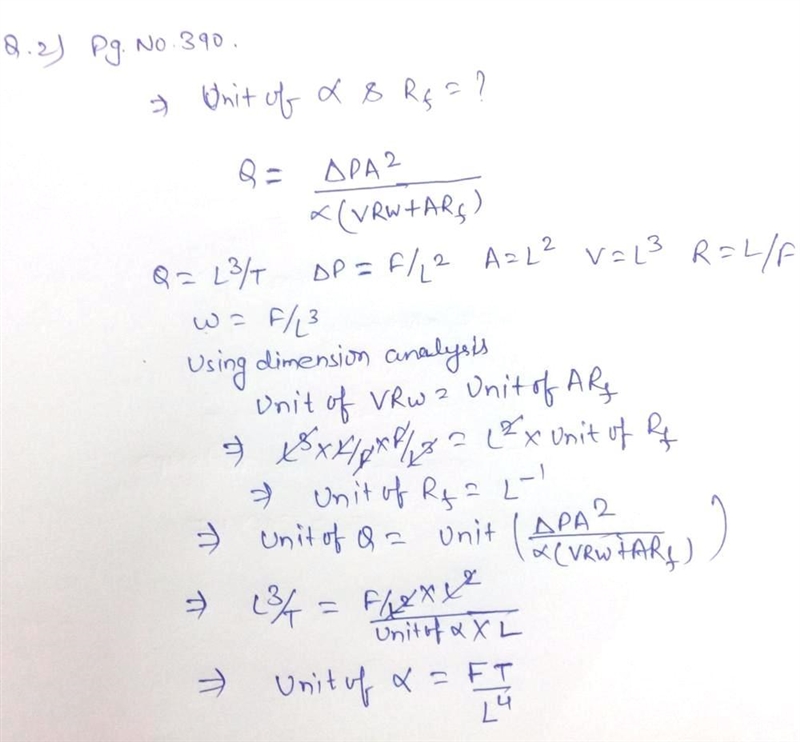 Q.2) Pg. No. 390.
⇒ Unit of α & Rf = ?
Q = ΔPA² / α(VRW+ARf)
Q = L³/T ΔP = F/L² A=L² V=L³ R=L/F
W = F/L³
Using dimension analysis
Unit of VRW = Unit of ARf
⇒ L³ x L/F x F/L³ = L² x Unit of Rf
⇒ Unit of Rf = L⁻¹
⇒ Unit of Q = Unit (ΔPA² / α(VRW+ARf))
⇒ L³/T = F/L² x L² / Unit of α x L
⇒ Unit of α = FT / L⁴